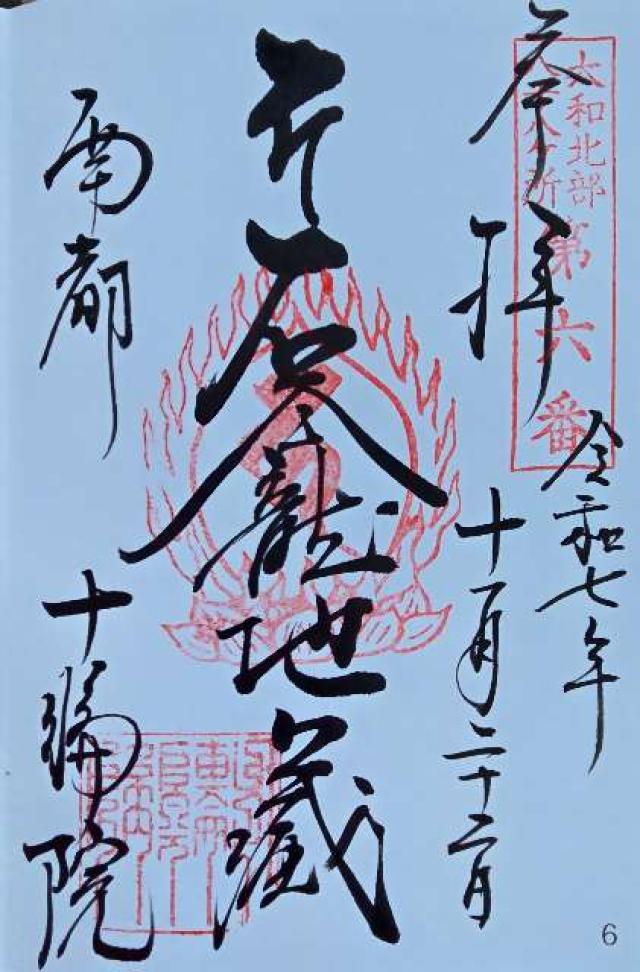 大和北部
八十八ヶ所 第六番
奉拝
令和七年
十一月二十二日
石龕地蔵
南都
十輪院
6